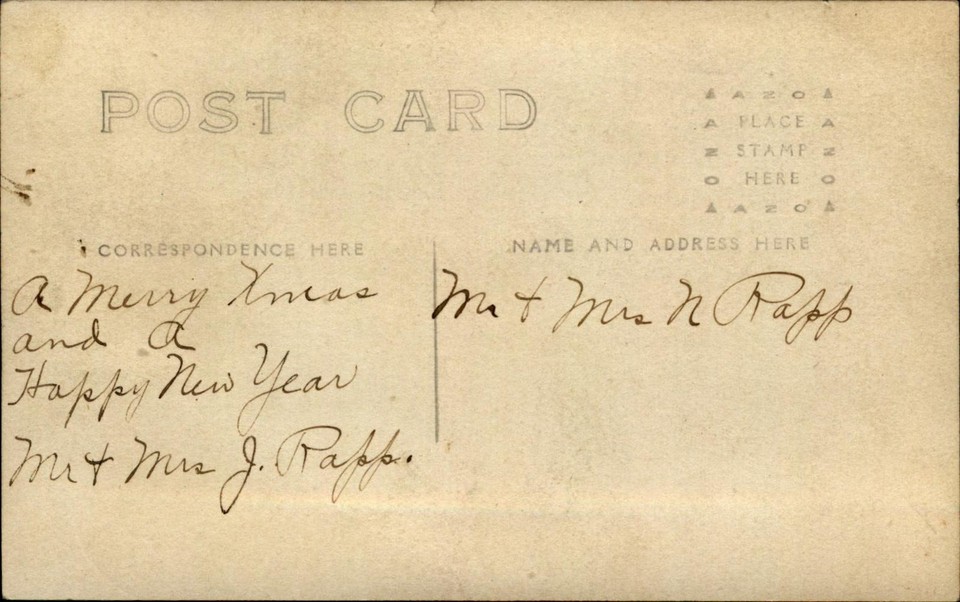 POST CARD
▲ AZO ▲
A PLACE A
N STAMP N
O HERE O
▲ AZO ▲
CORRESPONDENCE HERE
NAME AND ADDRESS HERE
A Merry Xmas
and a
Happy New Year
Mr + Mrs J. Rapp.
Mr + Mrs N Rapp